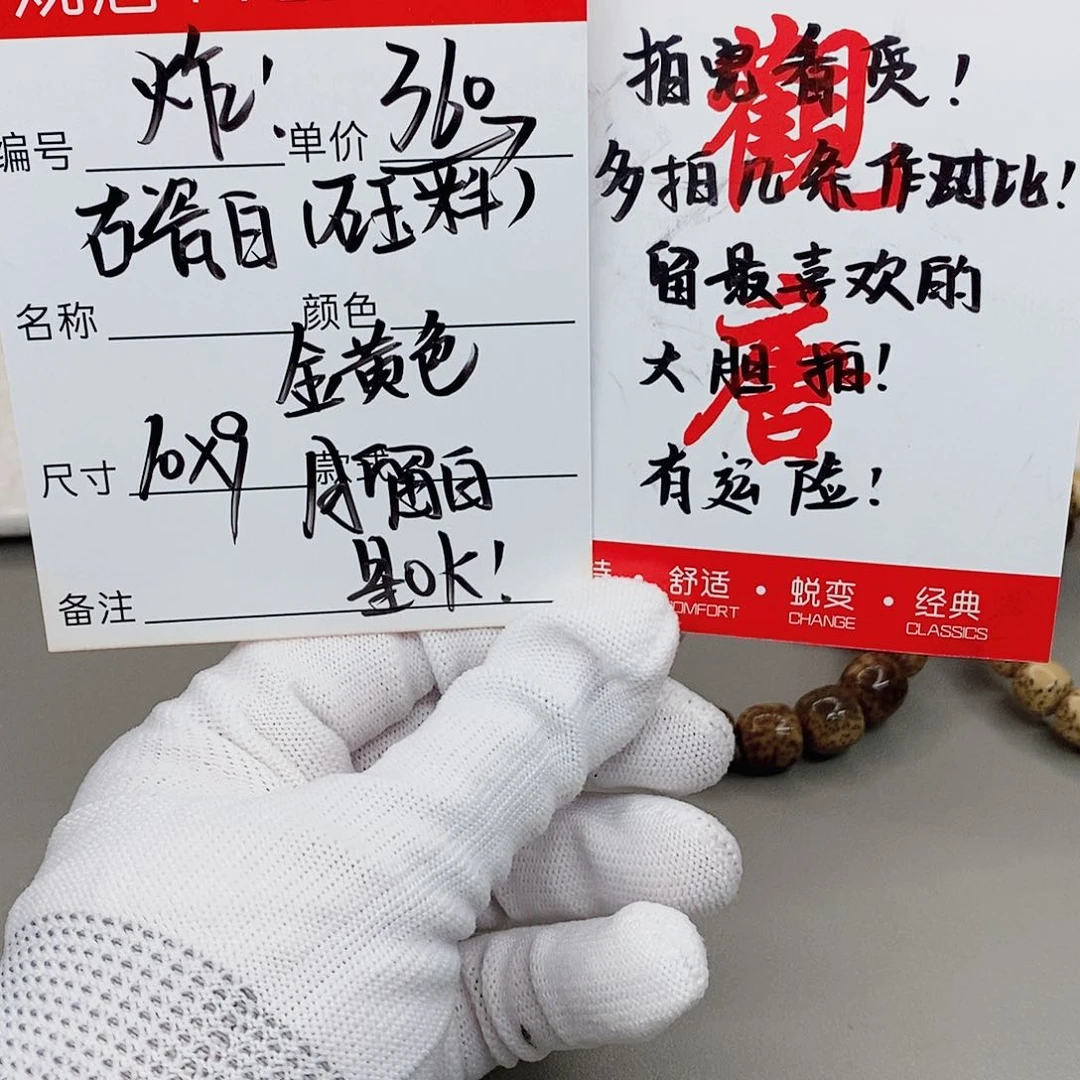 炸！
360
编号
单价
古瓷白（砡料）
名称
颜色
金黄色
10X9
尺寸
款式
月牙白
是OK！
备注
拍宽香质！
多拍几条作对比！
留最喜欢的
大胆拍！
有运险！
觀唐
舒适·蜕变·经典
COMFORT
CHANGE
CLASSICS